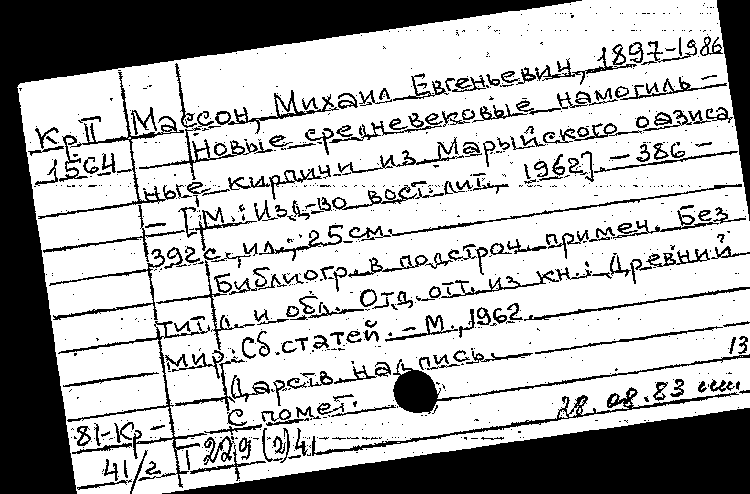 Массон, Михаил Евгеньевич, 1897-1986
Кр II
1564
Новые средневековые намогиль-
ные кирпичи из Марыйского оазиса
- [М.: Изд-во вост. лит., 1962]. - 386-
392 с., ил.; 25 см.
Библиогр. в подстроч. примеч. Без
тит. л. и обл. Отд. отт. из кн.: Древний
мир: Сб. статей. - М., 1962.
Дарств. надпись.
13
С помет.
28.08.83
81-Кр-
41/2
Т 229(2)41